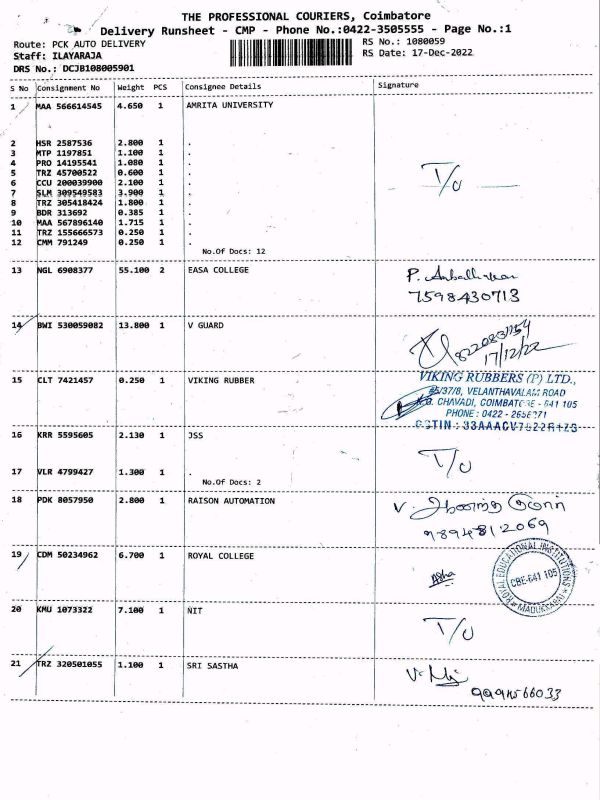 THE PROFESSIONAL COURIERS, Coimbatore
Delivery Runsheet - CMP - Phone No.:0422-3505555 - Page No.:1
Route: PCK AUTO DELIVERY
RS No.: 1080059
Staff: ILAYARAJA
RS Date: 17-Dec-2022
DRS No.: DCJB108005901
S No Consignment No Weight PCS Consignee Details Signature
1 MAA 566614545 4.650 1 AMRITA UNIVERSITY
2 HSR 2587536 2.800 1 .
3 MTP 1197851 1.100 1 .
4 PRO 14195541 1.080 1 .
5 TRZ 45700522 0.600 1 .
6 CCU 200039900 2.100 1 .
7 SLM 309549583 3.900 1 .
8 TRZ 305418424 1.800 1 .
9 BDR 313692 0.385 1 .
10 MAA 567896140 1.715 1 .
11 TRZ 155666573 0.250 1 .
12 CMM 791249 0.250 1 .
T/O
No.Of Docs: 12
13 NGL 6908377 55.100 2 EASA COLLEGE
7598430713
14 BWI 530059082 13.800 1 V GUARD
17/12/22
15 CLT 7421457 0.250 1 VIKING RUBBER
VIKING RUBBERS (P) LTD.,
VELANTHAVALAM ROAD
CHAVADI, COIMBATORE - 641 105
PHONE : 0422 -
16 KRR 5595605 2.130 1 JSS
T/O
17 VLR 4799427 1.300 1 .
No.Of Docs: 2
18 PDK 8057950 2.800 1 RAISON AUTOMATION
9894812069
19 CDM 50234962 6.700 1 ROYAL COLLEGE
ROYAL EDUCATIONAL INSTITUTIONS
CBE-641 105
MADUKKARAI
20 KMU 1073322 7.100 1 NIT
T/O
21 TRZ 320501055 1.100 1 SRI SASTHA